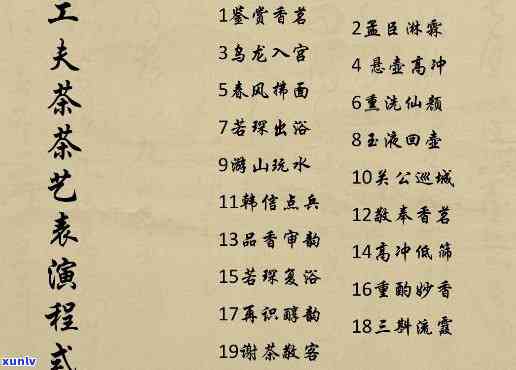 工夫茶茶艺表演程式
1鉴赏香茗
2孟臣淋霖
3乌龙入宫
4 悬壶高冲
5春风拂面
6重洗仙颜
7若琛出浴
8玉液回壶
9游山玩水
10关公巡城
11韩信点兵
12敬奉香茗
13品香审韵
14高冲低筛
15若琛复浴
16重酌妙香
17再识醇韵
18三斟流霞
19谢茶敬客
xunlv